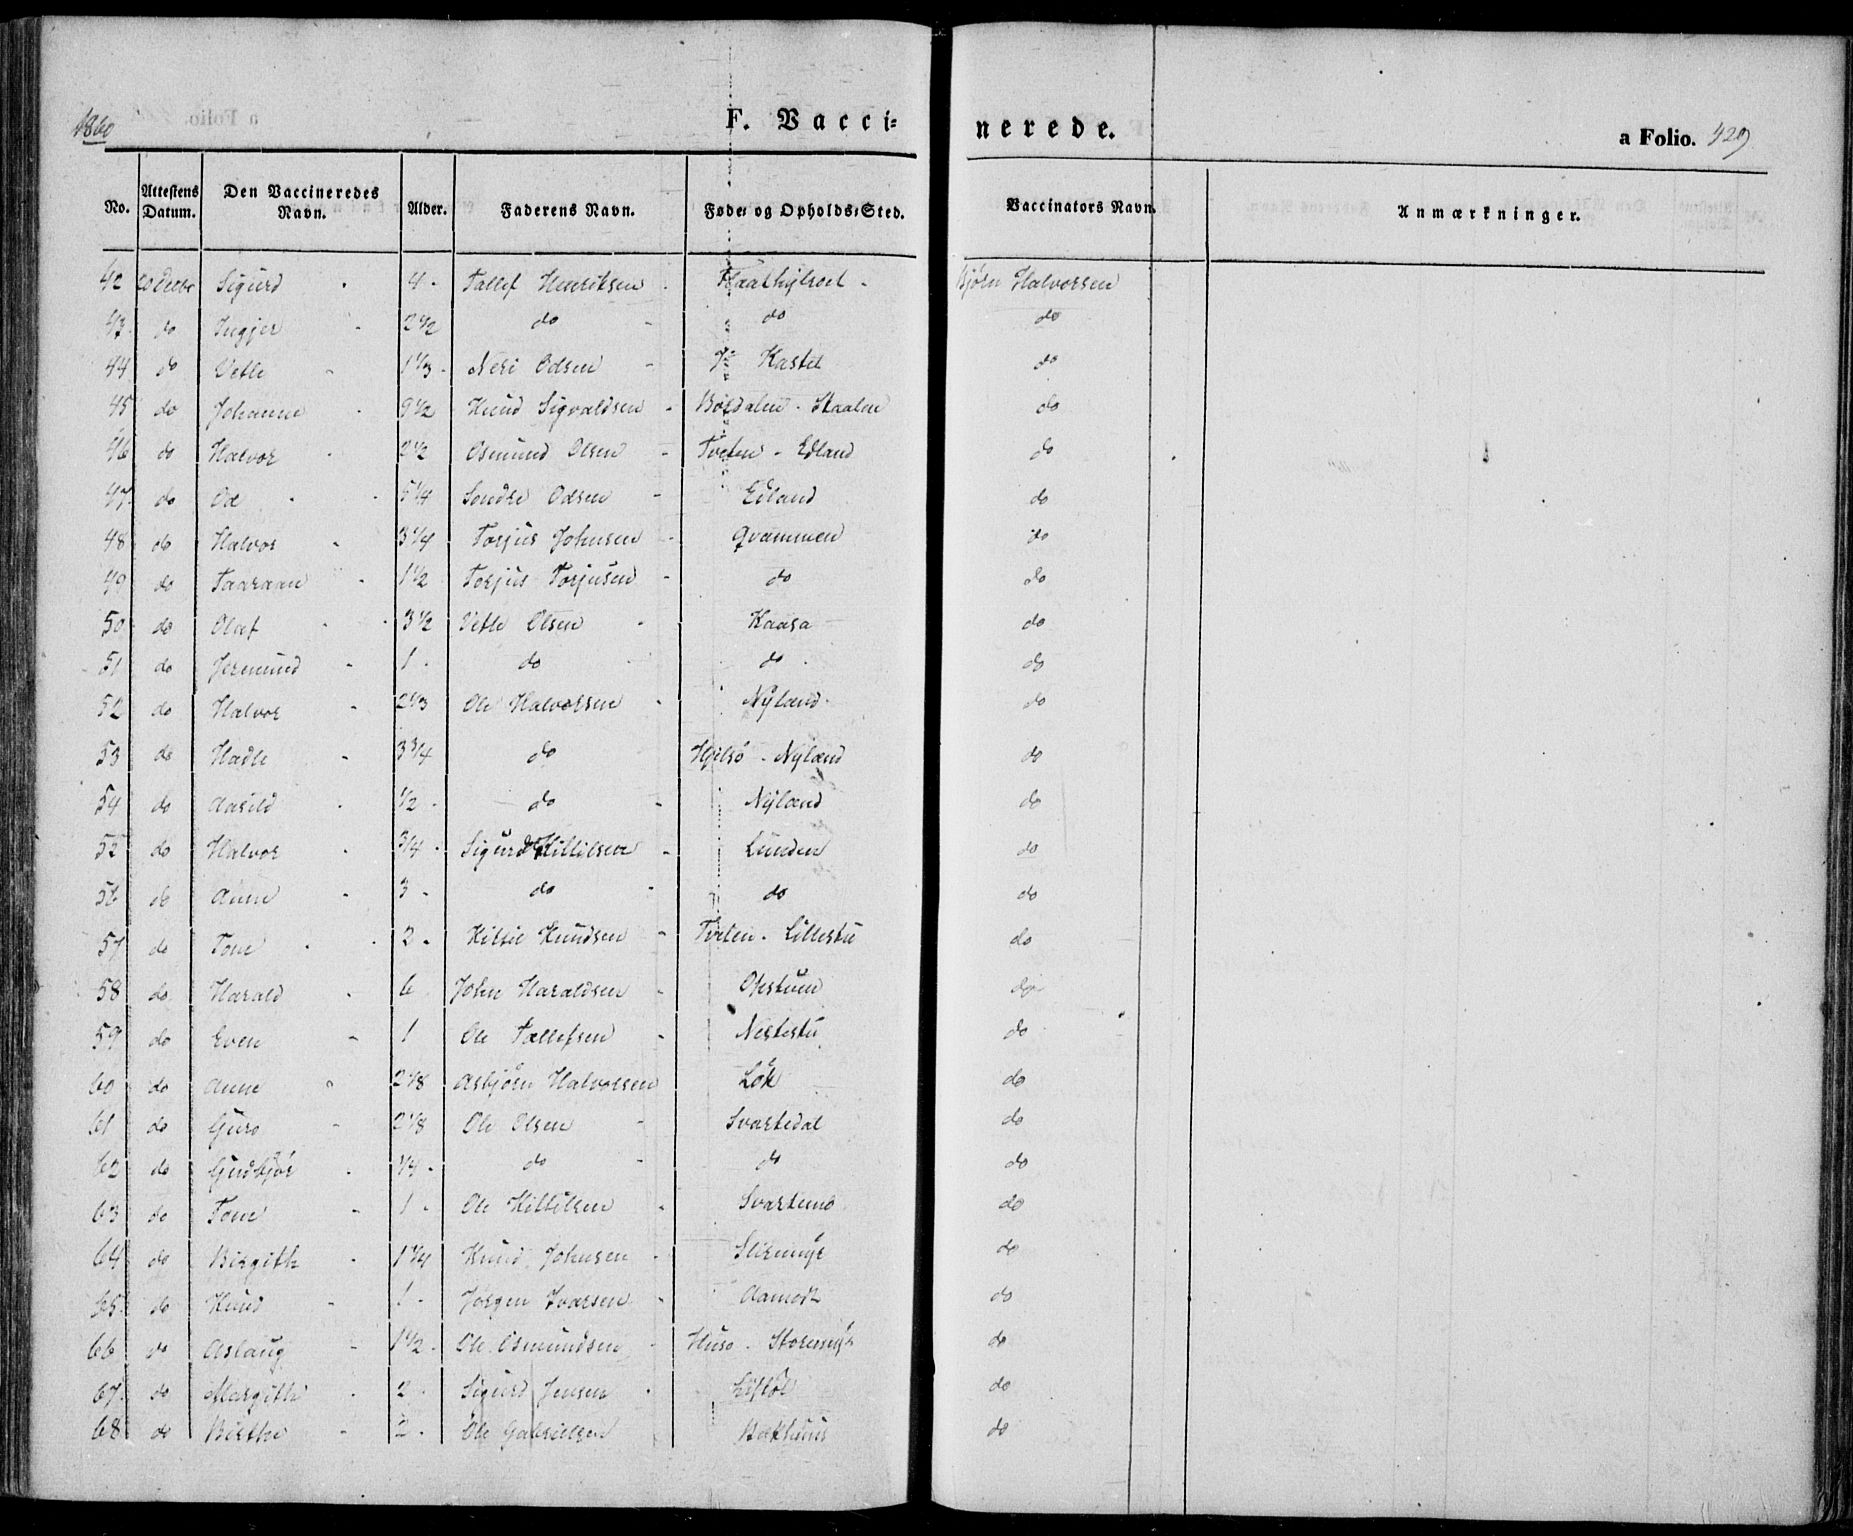 1860 F. Vacci= nerede. a Folio. 429
No. Attestens Datum. Den Vaccineredes Navn. Alder. Faderens Navn. Føde= og Opholds=Sted. Vaccinators Navn. Anmærkninger.
42 Sigurd 4 Tallef Henriksen Bjørn Halvorsen
43 do Ingjer 2 1/2 do do do
44 do Vetle 1 1/3 Neri Odsen Kastet do
45 do Johanne 9 1/2 Knud Sigvaldsen Børdalen - Skaalen do
46 do Halvor 2 1/2 Osmund Olsen Tveten - Edland do
47 do Od 5 1/4 Sondre Odsen Edland do
48 do Halvor 3 1/4 Torjus Johnsen Qvammen do
49 do Taaraan 1 1/2 Torjus Torjusen do do
50 do Olaf 3 1/2 Vetle Olsen Kaasa do
51 do Jermund 1 do do do
52 do Halvor 2 1/3 Ole Halvorsen Nyland do
53 do Hadle 3 3/4 do Hylsø - Nyland do
54 do Aasild 1/2 do Nyland do
55 do Halvor 3/4 Sigurd Kittilsen Lunden do
56 do Anne 3 do do do
57 do Tone 2 Kittil Knudsen Tveten - Lillestu do
58 do Harald 6 John Haraldsen Opstuen do
59 do Even 1 Ole Tallefsen Nestestu do
60 do Anne 2 1/8 Asbjørn Halvorsen Løk do
61 do Guro 2 1/8 Ole Olsen Svartedal do
62 do Gudbjør 1/4 do do do
63 do Tone 1 Ole Kittilsen Svartemo do
64 do Birgith 1 1/4 Knud Johnsen do
65 do Knud 1 Jørgen Ivarsen Aamodt do
66 do Aslaug 1 1/2 Ole Osmundsen Huso - Storemyr do
67 do Margith 2 Sigurd Jensen do
68 do Birthe 2 Ole Gabrielsen Bakhuus do